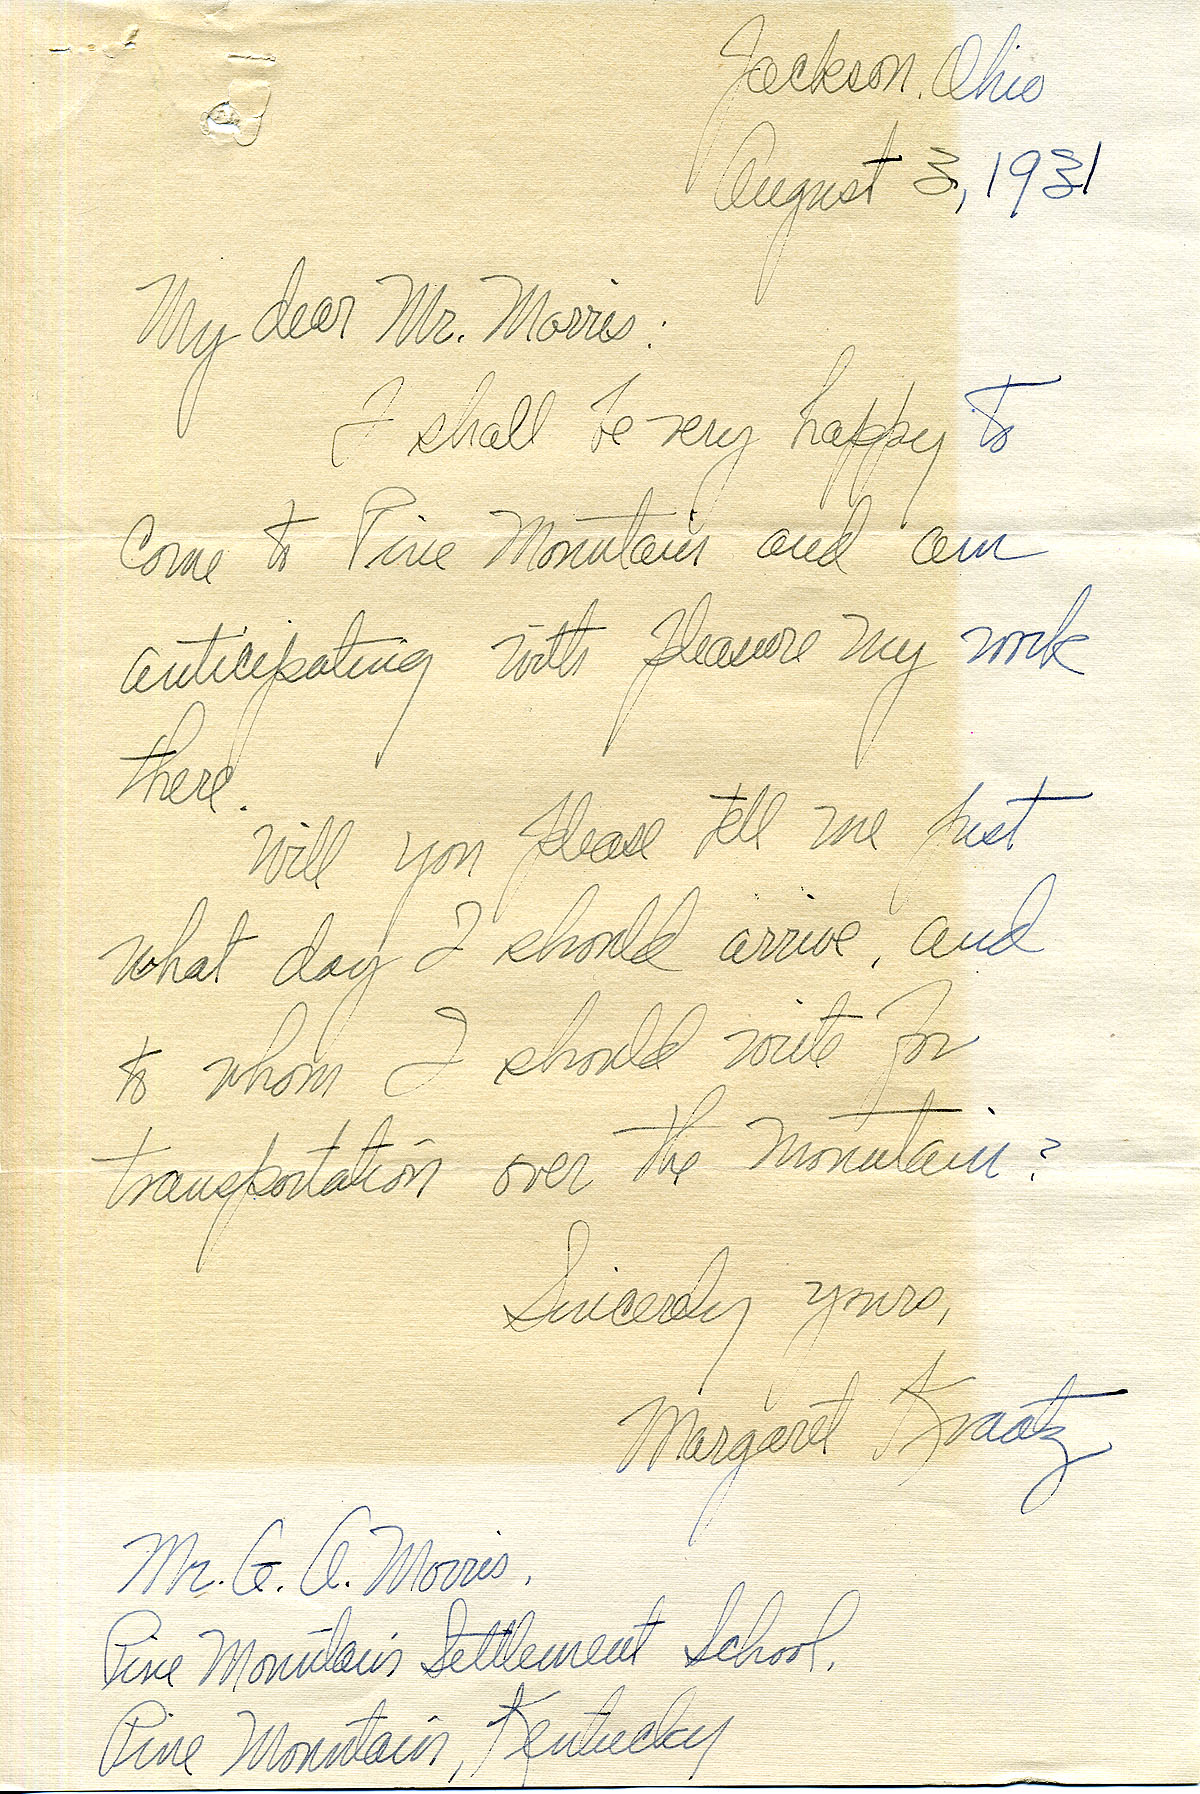 Jackson, Ohio
August 3, 1931
My dear Mr. Morris:
I shall be very happy to
come to Pine Mountain and am
anticipating with pleasure my work
there.
Will you please tell me just
what day I should arrive, and
to whom I should write for
transportation over the mountain?
Sincerely yours,
Margaret Kraatz
Mr. G. A. Morris,
Pine Mountain Settlement School,
Pine Mountain, Kentucky